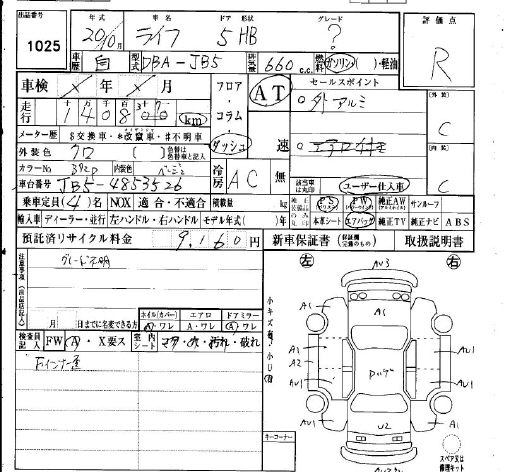 出品番号
1025
年式 車名 ドア 形状 グレード
20/10月 ライフ 5 HB ?
車歴 自 型式 DBA-JB5 排気量 660 c.c. 燃料 ガソリン( )・軽油
評価点
R
外装 C
内装 C
車検 年 月
走行 十万千百十一 140800 km
メーター歴 $交換車・*改竄車・#不明車
外装色 クロ ( ) 色替は色替車と記入
カラーNo 内装色 ベージュ
車台番号 JB5-4853526
フロア・コラム・ダッシュ
冷房 AC
AT
速
無
セールスポイント
○外アルミ
○エアロ付き
該当車は丸印 ユーザー仕入車
乗車定員(4)名 NOX 適合・不適合 積載量 kg
純正装備品 PS PW 純正AW サンルーフ
輸入車 ディーラー・並行 左ハンドル・右ハンドル モデル年式( )年
本革シート エアバッグ 純正TV 純正ナビ ABS
預託済リサイクル料金 9,160円
新車保証書 取扱説明書
注意事項(出品店記入)
グレード不明
月 日までに名変できる方
ホイル(カバー) エアロ ドアミラー
A・ワレ A・ワレ A・ワレ
検査員記入 FW A・X要ス 室内シート コゲ・穴・汚れ・破れ
Fインナー歪
小キズ有 小U有
キーコーナー
左 右
AU3
A1
A1 A1
A1 AU1
A2
AU1 AU1
A1 U2 AU1
スペアタイヤ又は修理キット